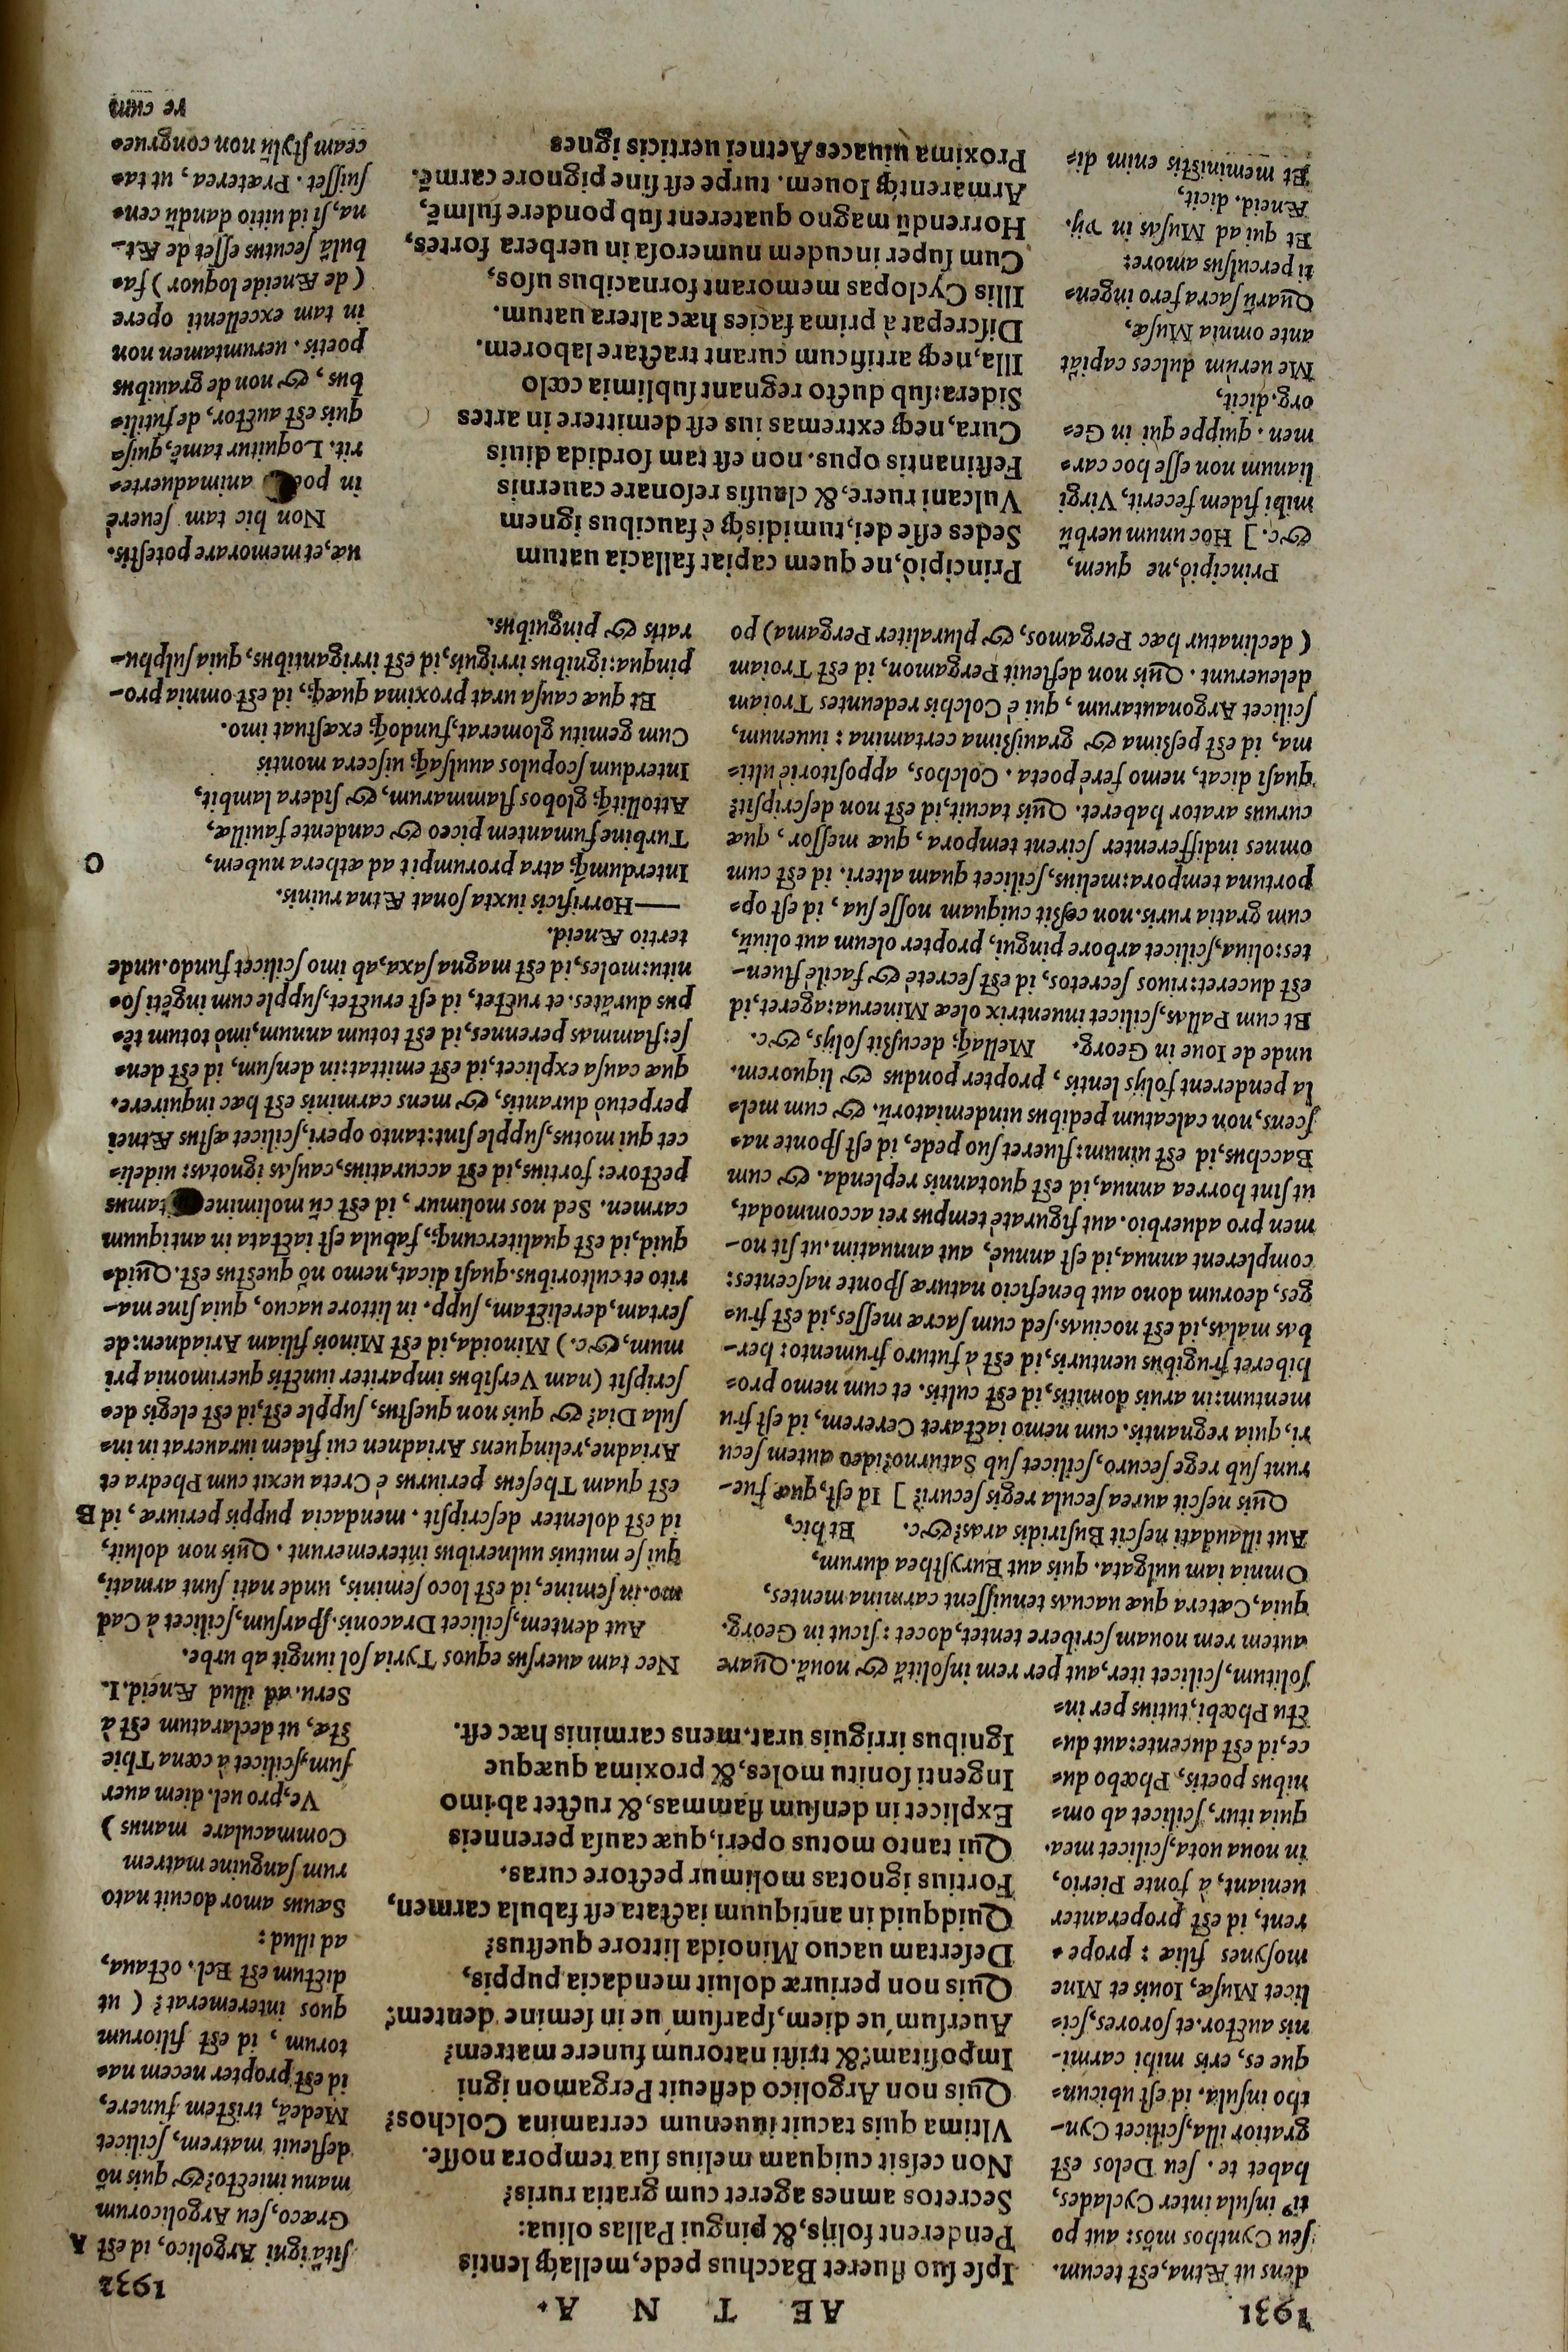 1931
AE T N A.
1932
dens ut Ætna, est tecum.
seu Cynthos mõs: aut po
tiꝰ insula inter Cyclades,
habet te. seu Delos est
gratior illa, scilicet Cyn-
tho insula. id est ubicun-
que es, eris mihi carmi-
nis auctor. et sorores, sci-
licet Musæ, Iouis et Mne
mosynes filiæ: prope-
rent, id est properanter
ueniant, à fonte Pierio,
in noua uota, scilicet mea.
quia itur, scilicet ab om-
nibus poetis, Phœbo du-
ce, id est ducente: aut du-
ctu Phœbi, tutius per in-
Ipse suo flueret Bacchus pede, mellaq́; lentis
Penderent folijs, & pingui Pallas oliua:
Secretos amnes ageret cum gratia ruris?
Non cessit cuiquam melius sua tempora nosse.
Vltima quis tacuit iuuenum certamina Colchos?
Quis non Argolico defleuit Pergamon igni
Impositam? & tristi natorum funere matrem?
Auersum'ue diem, sparsum'ue in semine dentem?
Quis non periuræ doluit mendacia puppis,
Desertam uacuo Minoida littore questus?
Quidquid in antiquum iactata est fabula carmen,
Fortius ignotas molimur pectore curas.
Qui tanto motus operi, quæ causa perenneis
Explicet in densum flammas, & ructet ab imo
Ingenti sonitu moles, & proxima quæque
Ignibus irriguis urat. mens carminis hæc est.
sitã igni Argolico, id est A
Græco, seu Argolicorum
manu iniecto? & quis nõ
defleuit matrem, scilicet
Medeã, tristem funere,
id est propter necem na-
torum, id est filiorum
quos interemerat? (ut
dictum est Ecl. octaua,
ad illud:
Sæuus amor docuit nato
rum sanguine matrem
Commaculare manus)
Ve, pro uel. diem auer
sum, scilicet à cœna Thie
stæ, ut declaratum est à
Seru. ad illud Æneid. I.
solitum, scilicet iter, aut per rem insolitã & nouã. Quare
autem rem nouam scribere tentet, docet: sicut in Georg.
quia, Cætera quæ uacuas tenuissent carmina mentes,
Omnia iam uulgata. quis aut Eurysthea durum,
Aut illaudati nescit Busiridis aras? &c. Et hic,
Quis nescit aurea secula regis securi? ] Id est, quæ fue-
runt sub rege securo, scilicet sub Saturno? ideo autem secu
ri, quia regnantis. cum nemo iactaret Cererem, id est fru
mentum: in aruis domitis, id est cultis. et cum nemo pro-
hiberet frugibus uenturis, id est à futuro frumento: her-
bas malas, id est nociuas. sed cum sacræ messes, id est fru-
ges, deorum dono aut beneficio naturæ sponte nascentes:
complerent annua, id est annuè, aut annuatim. ut sit no-
men pro aduerbio. aut figuratè tempus rei accommodat,
ut sint horrea annua, id est quotannis replenda. & cum
Bacchus, id est uinum: flueret suo pede, id est sponte na-
scens, non calcatum pedibus uindemiatorũ. & cum mel-
la penderent folijs lentis, propter pondus & liquorem.
unde de Ioue in Georg. Mellaq́; decussit folijs, &c.
Et cum Pallas, scilicet inuentrix oleæ Minerua: ageret, id
est duceret: riuos secretos, id est secretè & facilè fluen-
tes: oliua, scilicet arbore pingui, propter oleum aut oliuũ,
cum gratia ruris. non cessit cuiquam nosse sua, id est op-
portuna tempora: melius, scilicet quam alteri. id est cum
omnes indifferenter scirent tempora, quæ messor, quæ
curuus arator haberet. Quis tacuit, id est non descripsit?
quasi dicat, nemo ferè poeta. Colchos, appositoriè ulti-
ma, id est pessima & grauissima certamina: iuuenum,
scilicet Argonautarum, qui è Colchis redeuntes Troiam
deleuerunt. Quis non defleuit Pergamon, id est Troiam
(declinatur hæc Pergamos, & pluraliter Pergama) po
Nec tam auersus equos Tyria sol iungit ab urbe.
Aut dentem, scilicet Draconis. sparsum, scilicet à Cad
mo. in semine, id est loco seminis, unde nati sunt armati,
qui se mutuis uulneribus interemerunt. Quis non doluit,
id est dolenter descripsit. mendacia puppis periuræ, id B
est quam Theseus periurus è Creta uexit cum Phedra et
Ariadne, relinquens Ariadnen cui fidem iurauerat in in-
sula Dia? & quis non questus, supple est, id est elegis des-
cripsit (nam Versibus impariter iunctis querimonia pri
mum, &c.) Minoida, id est Minois filiam Ariadnen: de
sertam, derelictam, supp. in littore uacuo, quia sine ma-
rito et cultoribus. quasi dicat, nemo nõ questus est. Quid-
quid, id est qualitercunq;, fabula est iactata in antiquum
carmen. Sed nos molimur, id est cũ molimine tamus
pectore: fortius, id est accuratius, causas ignotas: uideli-
cet qui motus, supple sint: tanto operi, scilicet æstus Ætnei
perpetuò durantis, & mens carminis est hæc inquirere.
quæ causa explicet, id est emittat: in densum, id est den-
se: flammas perennes, id est totum annum, imò totum tẽ-
pus durãtes. et ructet, id est eructet, supple cum ingẽti so-
nitu: moles, id est magna saxa, ab imo scilicet fundo. unde
tertio Æneid.
——Horrificis iuxta sonat Ætna ruinis.
Interdumq́; atra prorumpit ad æthera nubem, C
Turbine fumantem piceo & candente fauilla,
Attollitq́; globos flammarum, & sidera lambit,
Interdum scopulos auulsaq́; uiscera montis
Cum gemitu glomerat, fundoq́; exæstuat imo.
Et quæ causa urat proxima quæq;, id est omnia pro-
pinqua: ignibus irriguis, id est irrigantibus, quia sulphu-
ratis & pinguibus.
Principiò, ne quem,
&c. ] Hoc unum uerbũ
mihi fidem fecerit, Virgi
lianum non esse hoc car-
men. quippe qui in Ge-
org. dicit,
Me uerùm dulces capiãt
ante omnia Musæ,
Quarũ sacra fero ingen-
ti perculsus amore:
Et qui ad Musas in vij.
Æneid. dicit,
Et meministis enim di-
Principiò, ne quem capiat fallacia uatum
Sedes esse dei, tumidisq́; è faucibus ignem
Vulcani ruere, & clausis resonare cauernis
Festinantis opus. non est tam sordida diuis
Cura, neq; extremas ius est demittere in artes
Sidera: sub ducto regnant sublimia cœlo
Illa, neq; artificum curant tractare laborem.
Discrepat à prima facies hæc altera uatum.
Illis Cyclopas memorant fornacibus usos,
Cum super incudem numerosa in uerbera fortes,
Horrendũ magno quaterent sub pondere fulmẽ,
Armarentq́; Iouem. turpe est sine pignore carmẽ.
Proxima uiuaces Aetnei uerticis ignes
uæ, et memorare potestis.
Non hic tam seuerè
in po animaduerte-
rit. Loquitur tamẽ, quis-
quis est auctor, de futili-
bus, & non de grauibus
poetis. ueruntamen non
in tam excellenti opere
(de Æneide loquor) fa-
bulã secutus esset de Æt-
na, si id uitio dandũ cen-
suisset. Præterea, ut ta-
ceam stylũ non congrue-
re cum